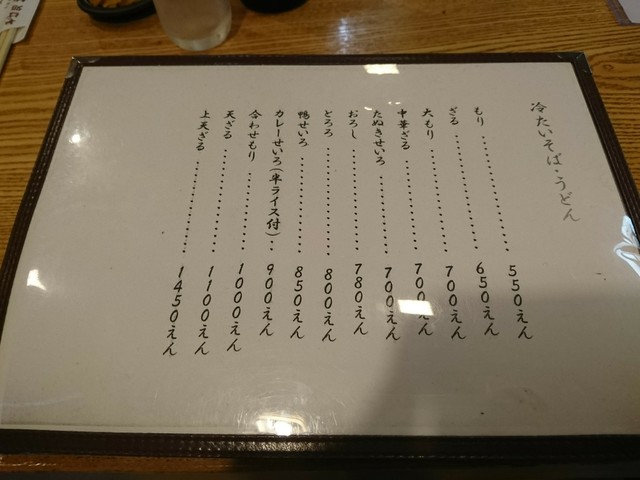 冷たいそば・うどん
もり………………550えん
ざる………………650えん
大もり………………700えん
中華ざる………………700えん
たぬきせいろ………………700えん
おろし………………780えん
とろろ………………800えん
鴨せいろ………………850えん
カレーせいろ(半ライス付)‥900えん
合わせもり………………1000えん
天ざる………………1100えん
上天ざる………………1450えん